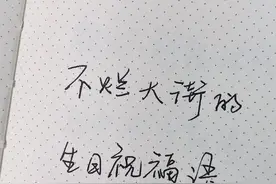 不烂大街的
生日祝福语